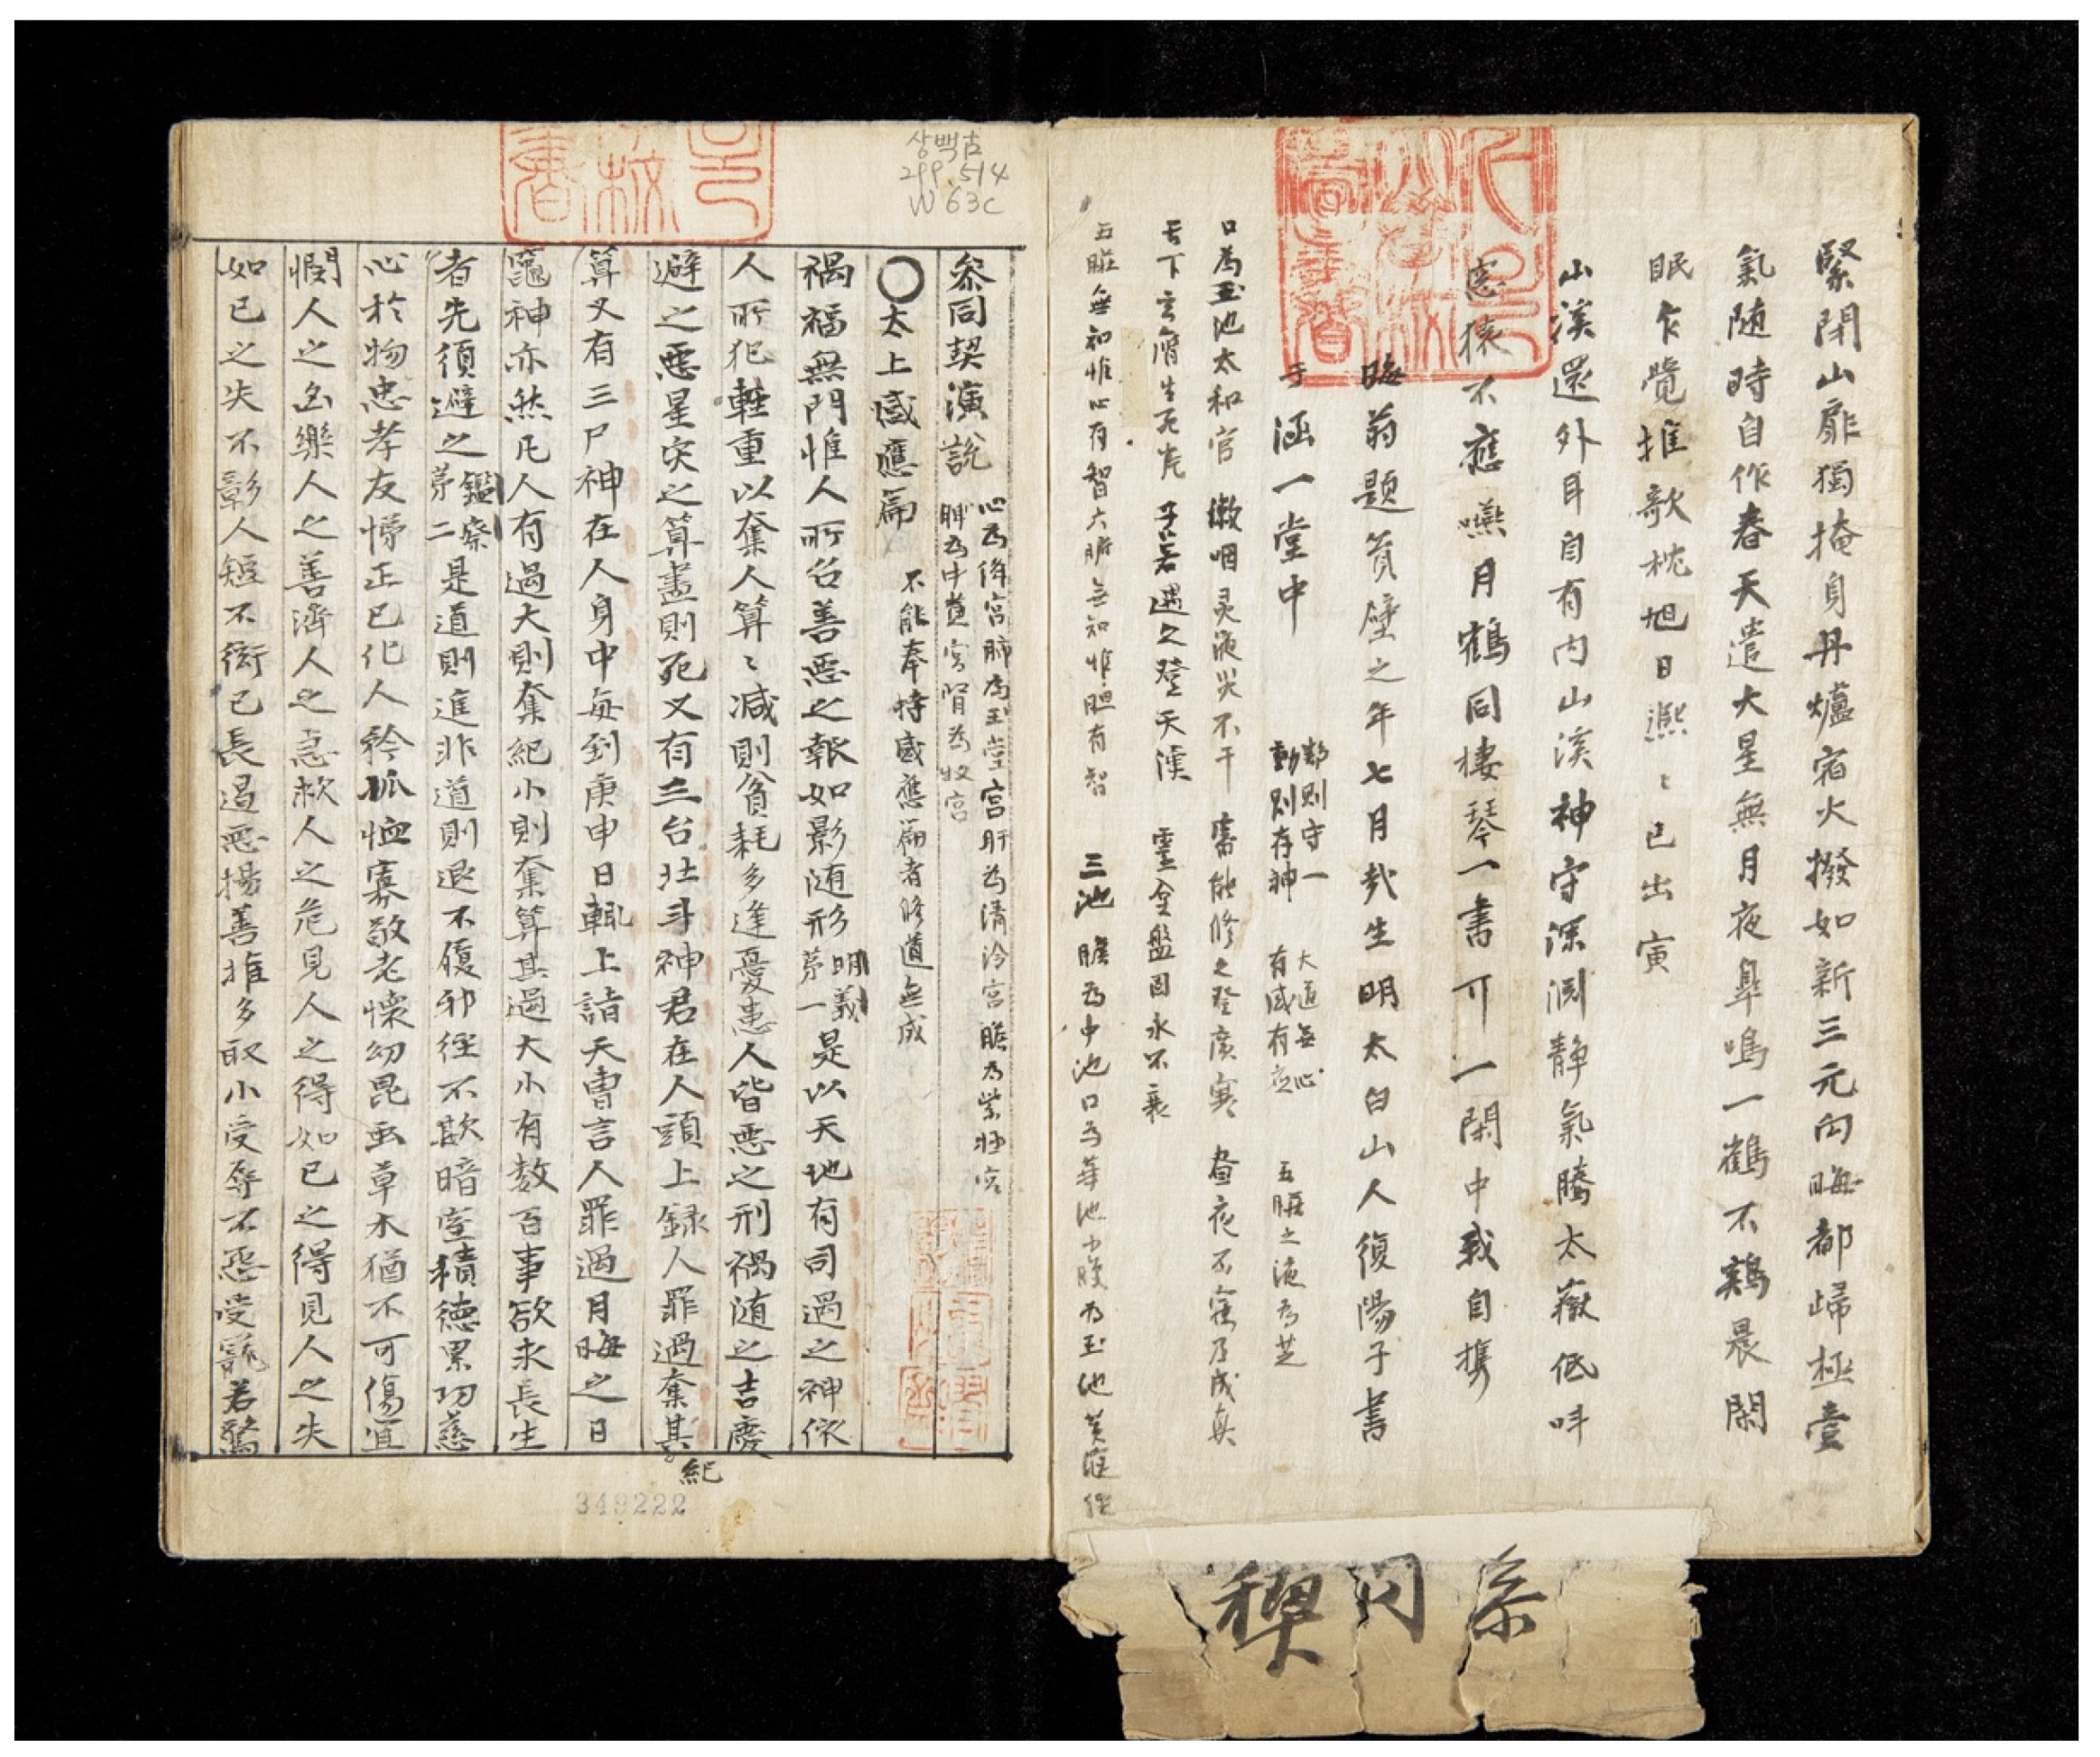 緊閉山扉獨掩身丹爐宿火撥如新三元向晦都歸極壹
氣随時自作春天遣大星無月夜臯鳴一鶴不鷄晨閑
眠乍覺推欹枕旭日凞〻已出寅
山溪還外耳自有內山溪神守深渊静氣騰太嶽低叫
猿不應嘯月鶴同棲琴一書可一閑中我自携
晦翁題筼壁之年七月哉生明太白山人復陽子書
于涵一堂中
動則存神
有感有
大道無心
五臟之液為芝
口為玉池太和官漱咽灵液災不干審能修之登廣寒晝夜不寐乃成真
子若遇之登天漢
靈臺盤固永不衰
五臟無知惟心有智六腑無知惟胆有智
三池膽為中池口為華池小腹為玉池黃庭經
상백古
299.514
W63c
叅同契演說
心為絳宮肺為玉堂宮肝為清泠宮膽為紫極宮
脾為中黃宮腎為牧宮
〇太上感應篇
不能奉持感應篇者修道無成
禍福無門惟人所召善惡之報如影随形
明義
茅一
是以天地有司過之神依
人所犯輕重以奪人算〻减則貧耗多逢憂患人皆惡之刑禍随之吉慶
避之惡星灾之算盡則死又有三台北斗神君在人頭上録人罪過奪其紀
算又有三尸神在人身中每到庚申日輙上詣天曹言人罪過月晦之日
竈神亦然凡人有過大則奪紀小則奪算其過大小有数百事欲求長生
者先須避之
鑑察
茅二
是道則進非道則退不履邪徑不欺暗室積德累功慈
心於物忠孝友悌正己化人矜孤恤寡敬老懷幼昆虫草木猶不可傷宜
憫人之凶樂人之善濟人之急救人之危見人之得如己之得見人之失
如己之失不彰人短不衒己長遏惡揚善推多取小受辱不怨受寵若驚
349222
叅同契